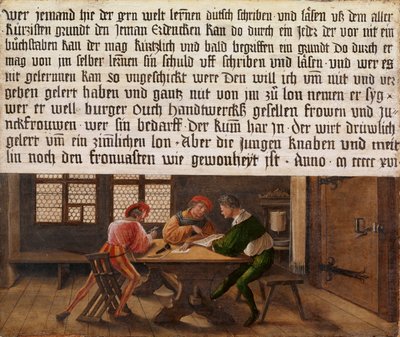 wer jemand hie der gern welt lernnen dütsch schriben und läsen uß dem aller
kürtzisten grundt den jeman Erdencken kan do durch ein jeder der vor nit ein
büchstaben kan der mag kürtzlich und bald begriffen ein grundt do durch er
mag von jm selber lernnen sin schuld uff schriben und läsen und wer es
nit gelernnen kan so ungeschickt were Den will ich um nüt und ver
geben gelert haben und gantz nüt von jm zu lon nemen er syg
wer er well burger Ouch Handtwercks gesellen frowen und ju
nckfrouwen wer sin bedarff Der kum har jn der wirt drüwlich
gelert um ein zimlichen lon · Aber die jungen knaben und meit
lin noch den fronuasten wie gewonheyt ist · Anno · m ccccc xvi